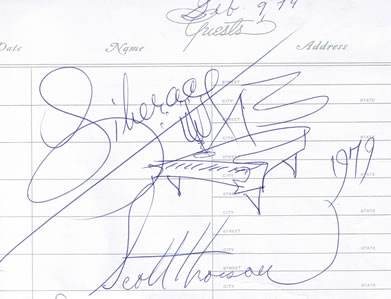 Feb. 9 79
Guests
Date Name Address
STREET
CITY STATE
Liberace
STREET
CITY STATE
1979
STREET
CITY STATE
STREET
CITY STATE
Scott Thorson
STREET
CITY STATE